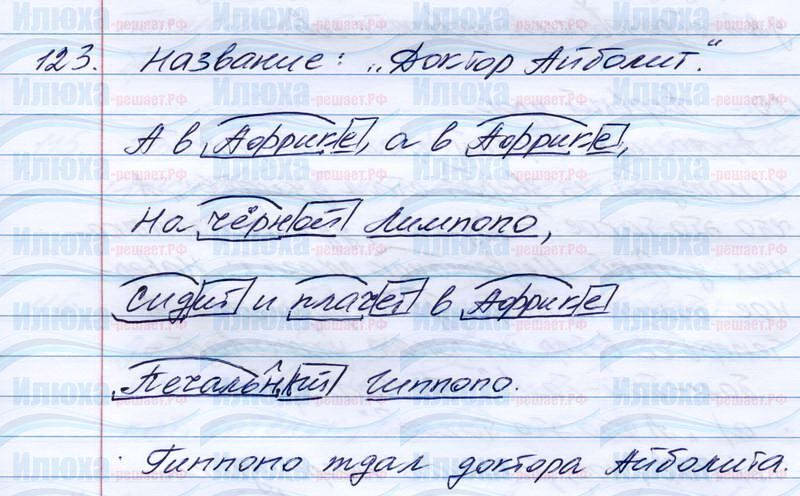 123. Название: „Доктор Айболит."
А в Африке, а в Африке,
На чёрной Лимпопо,
Сидит и плачет в Африке
Печальный Гиппопо.
Гиппопо ждал доктора Айболита.